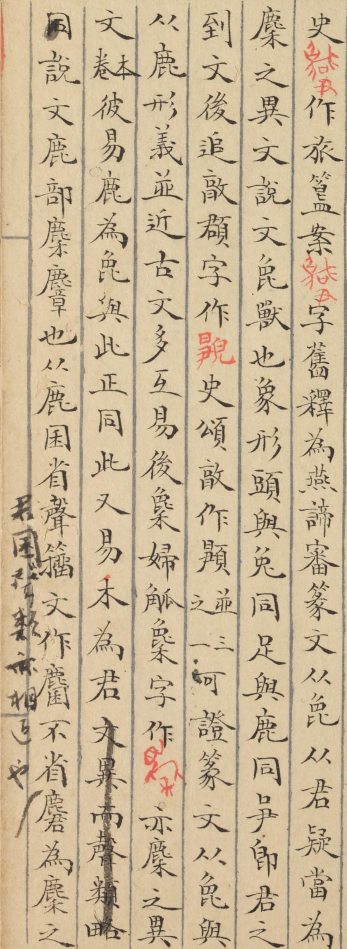 史作旅簠案字舊釋為燕諦審篆文从㲋从君疑當為
麇之異文說文㲋獸也象形頭與兔同足與鹿同尹卽君之
到文後追敦頵字作史頌敦作顨並三之一可證篆文从㲋與
从鹿形義並近古文多互易後婦觚字作亦麇之異
文本卷彼易鹿為㲋與此正同此又易禾為君文異而聲類略
同說文鹿部麇麞也从鹿囷省聲籀文作麕不省麏為麇之
君囷聲類亦相近也